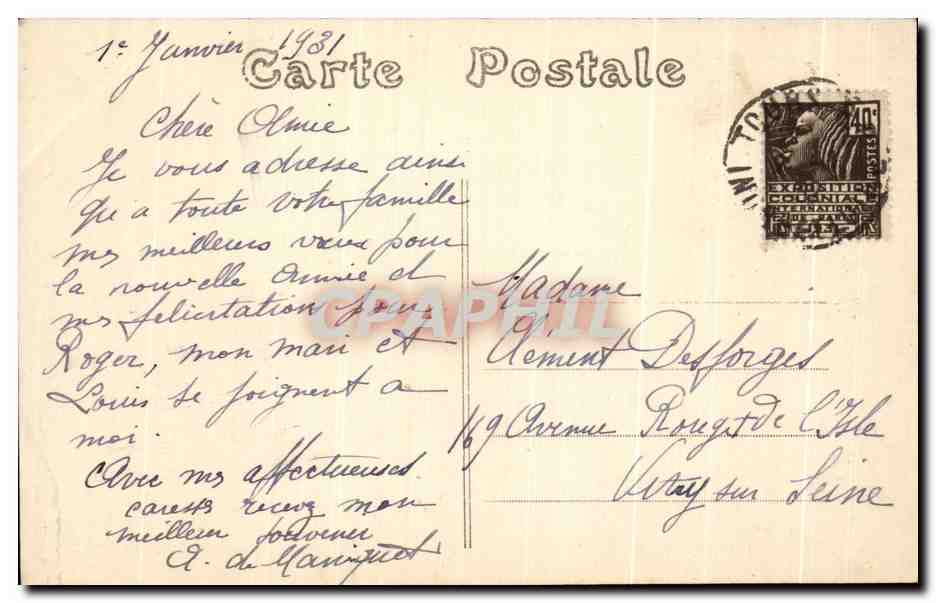 1e Janvier 1931
Carte Postale
Chère Amie
Je vous adresse ainsi
qu'a toute votre famille
mes meilleurs vœux pour
la nouvelle année et
mes felicitation pour
Roger, mon mari et
Louis se joignent a
moi.
Avec mes affectueuses
caresses recevez mon
meilleur souvenir
A. de
40c
POSTES
EXPOSITION
COLONIALE
INTERNATIONALE
DE PARIS
1931
CPAPHIL
Madame
Clément Desforges
169 Avenue Rouget de l'Isle
Vitry sur Seine